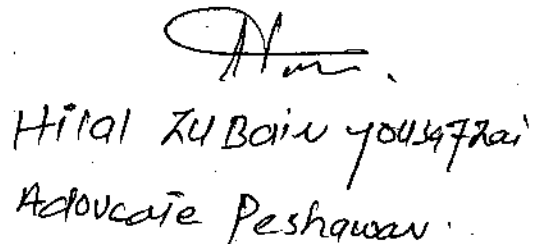 Hilal Zubair Yousafzai
Advocate Peshawar.